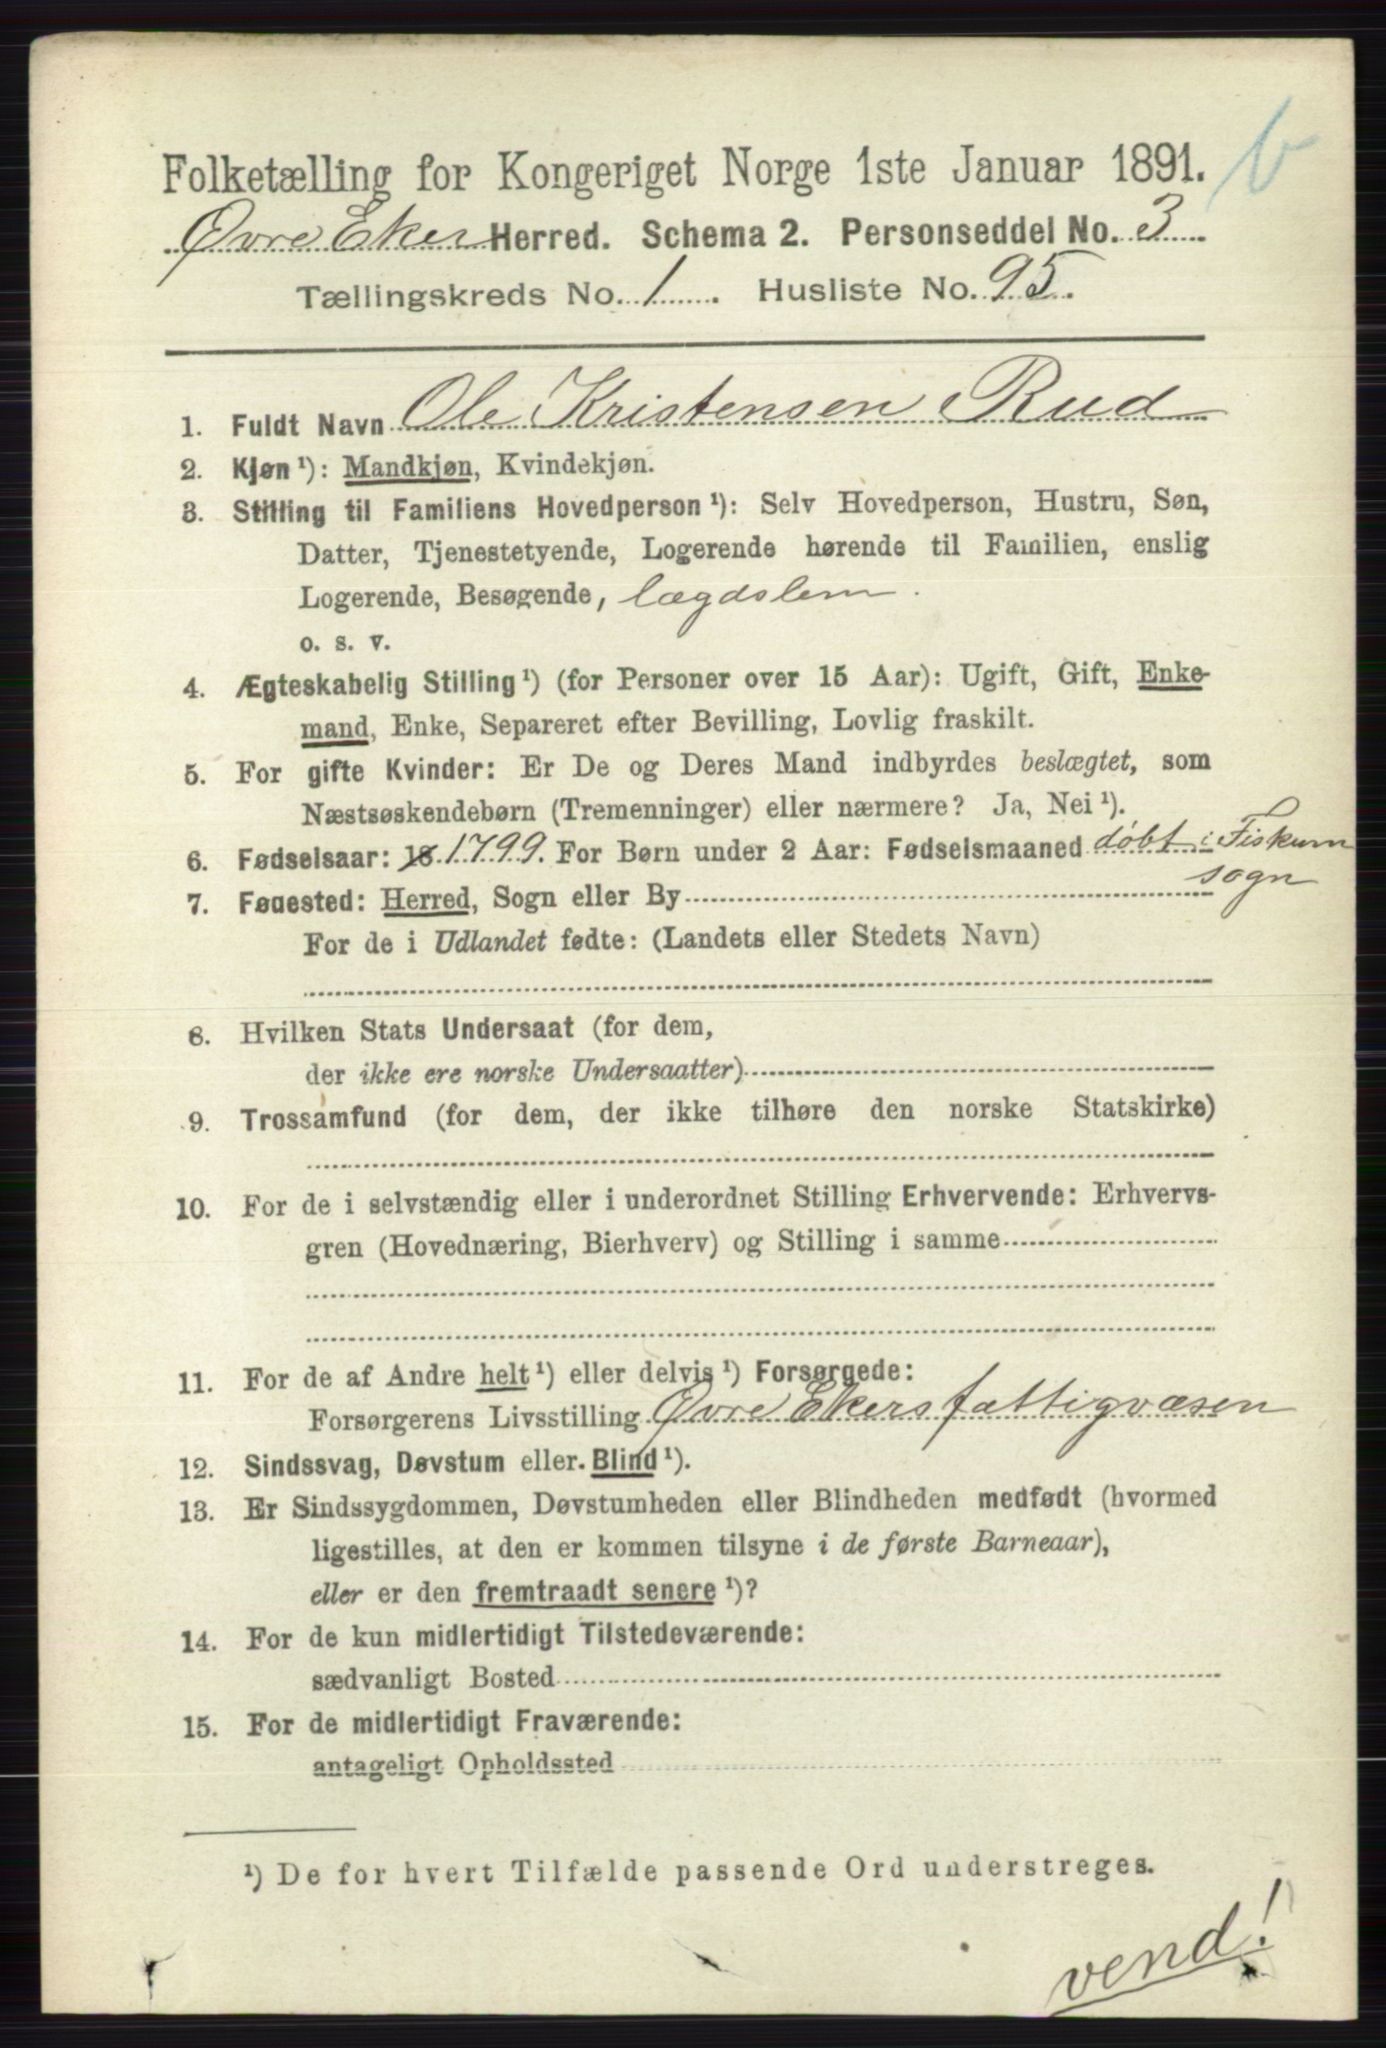 b
Folketælling for Kongeriget Norge 1ste Januar 1891.
Øvre Eker Herred. Schema 2. Personseddel No. 3
Tællingskreds No. 1. Husliste No. 95.
1. Fuldt Navn Ole Kristensen Rud
2. Kjøn ¹): Mandkjøn, Kvindekjøn.
3. Stilling til Familiens Hovedperson ¹): Selv Hovedperson, Hustru, Søn,
Datter, Tjenestetyende, Logerende hørende til Familien, enslig
Logerende, Besøgende, lægdslem.
o. s. v.
4. Ægteskabelig Stilling ¹) (for Personer over 15 Aar): Ugift, Gift, Enke-
mand, Enke, Separeret efter Bevilling, Lovlig fraskilt.
5. For gifte Kvinder: Er De og Deres Mand indbyrdes beslægtet, som
Næstsøskendebørn (Tremenninger) eller nærmere? Ja, Nei ¹).
6. Fødselsaar: 18 1799. For Børn under 2 Aar: Fødselsmaaned døbt i Fiskum
sogn
7. Fødested: Herred, Sogn eller By
For de i Udlandet fødte: (Landets eller Stedets Navn)
8. Hvilken Stats Undersaat (for dem,
der ikke ere norske Undersaatter)
9. Trossamfund (for dem, der ikke tilhøre den norske Statskirke)
10. For de i selvstændig eller i underordnet Stilling Erhvervende: Erhvervs-
gren (Hovednæring, Bierhverv) og Stilling i samme
11. For de af Andre helt ¹) eller delvis ¹) Forsørgede:
Forsørgerens Livsstilling Øvre Ekers fattigvæsen
12. Sindssvag, Døvstum eller Blind ¹).
13. Er Sindssygdommen, Døvstumheden eller Blindheden medfødt (hvormed
ligestilles, at den er kommen tilsyne i de første Barneaar),
eller er den fremtraadt senere ¹)?
14. For de kun midlertidigt Tilstedeværende:
sædvanligt Bosted
15. For de midlertidigt Fraværende:
antageligt Opholdssted
¹) De for hvert Tilfælde passende Ord understreges.
vend!